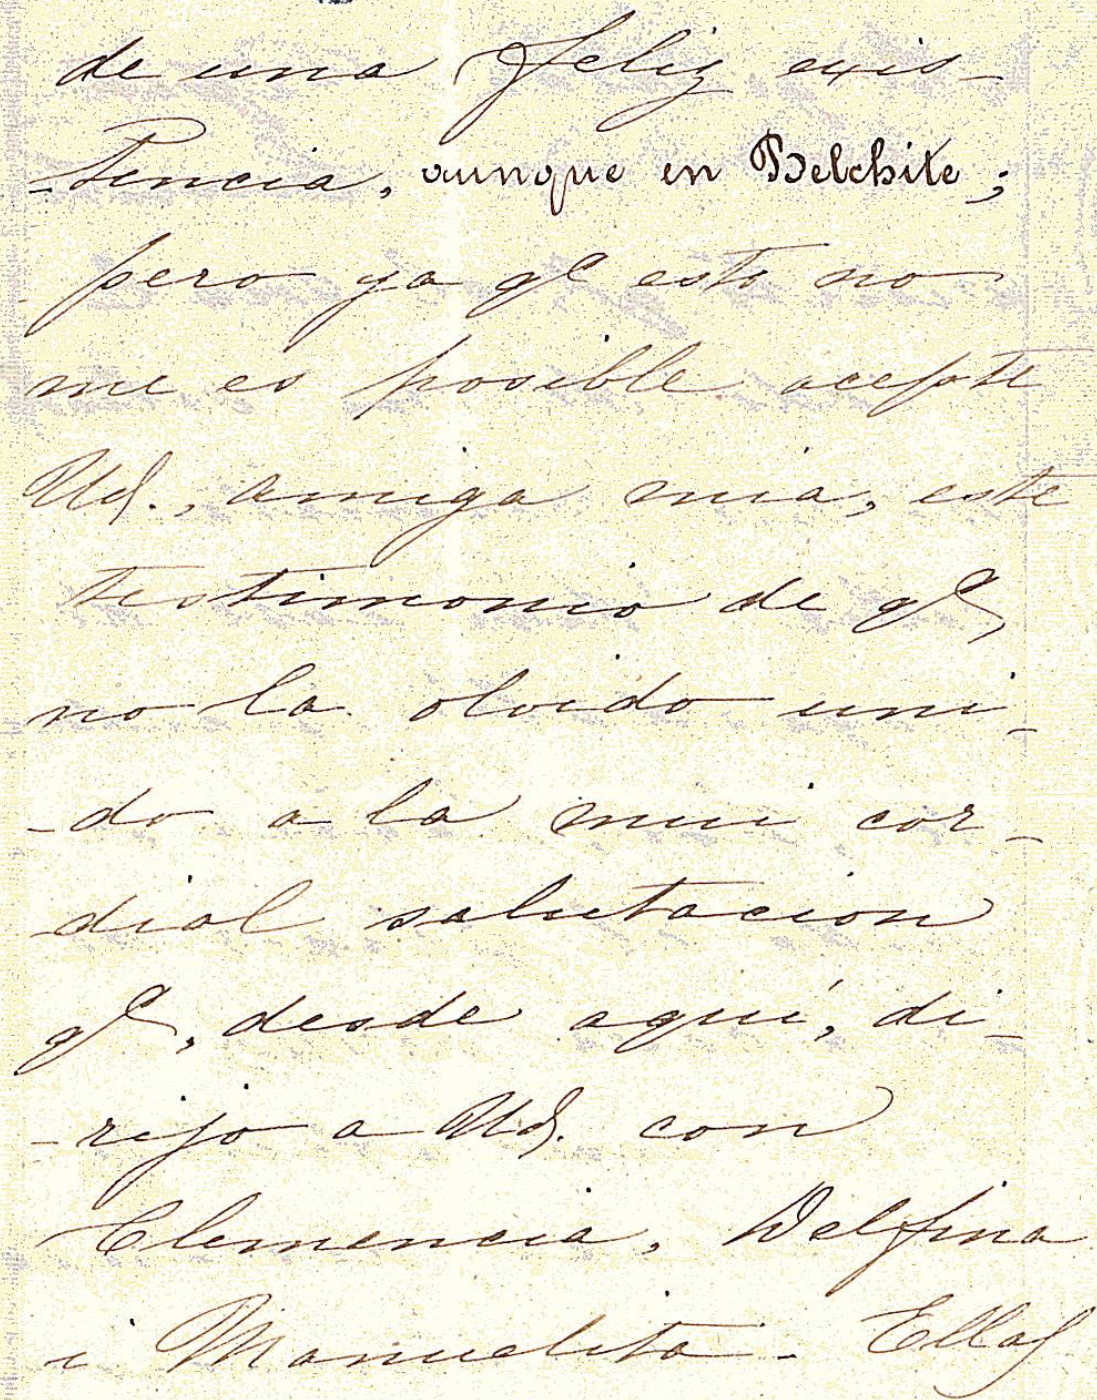 de una feliz exis-
-tencia, aunque en Belchite;
pero ya qe esto no
me es posible acepte
Ud., amiga mia, este
testimonio de qe,
no la olvido uni-
-do a la mui cor-
dial salutacion
qe, desde aquí, di-
-rijo a Ud. con
Clemencia, Delfina
i Manuelita. Ellas